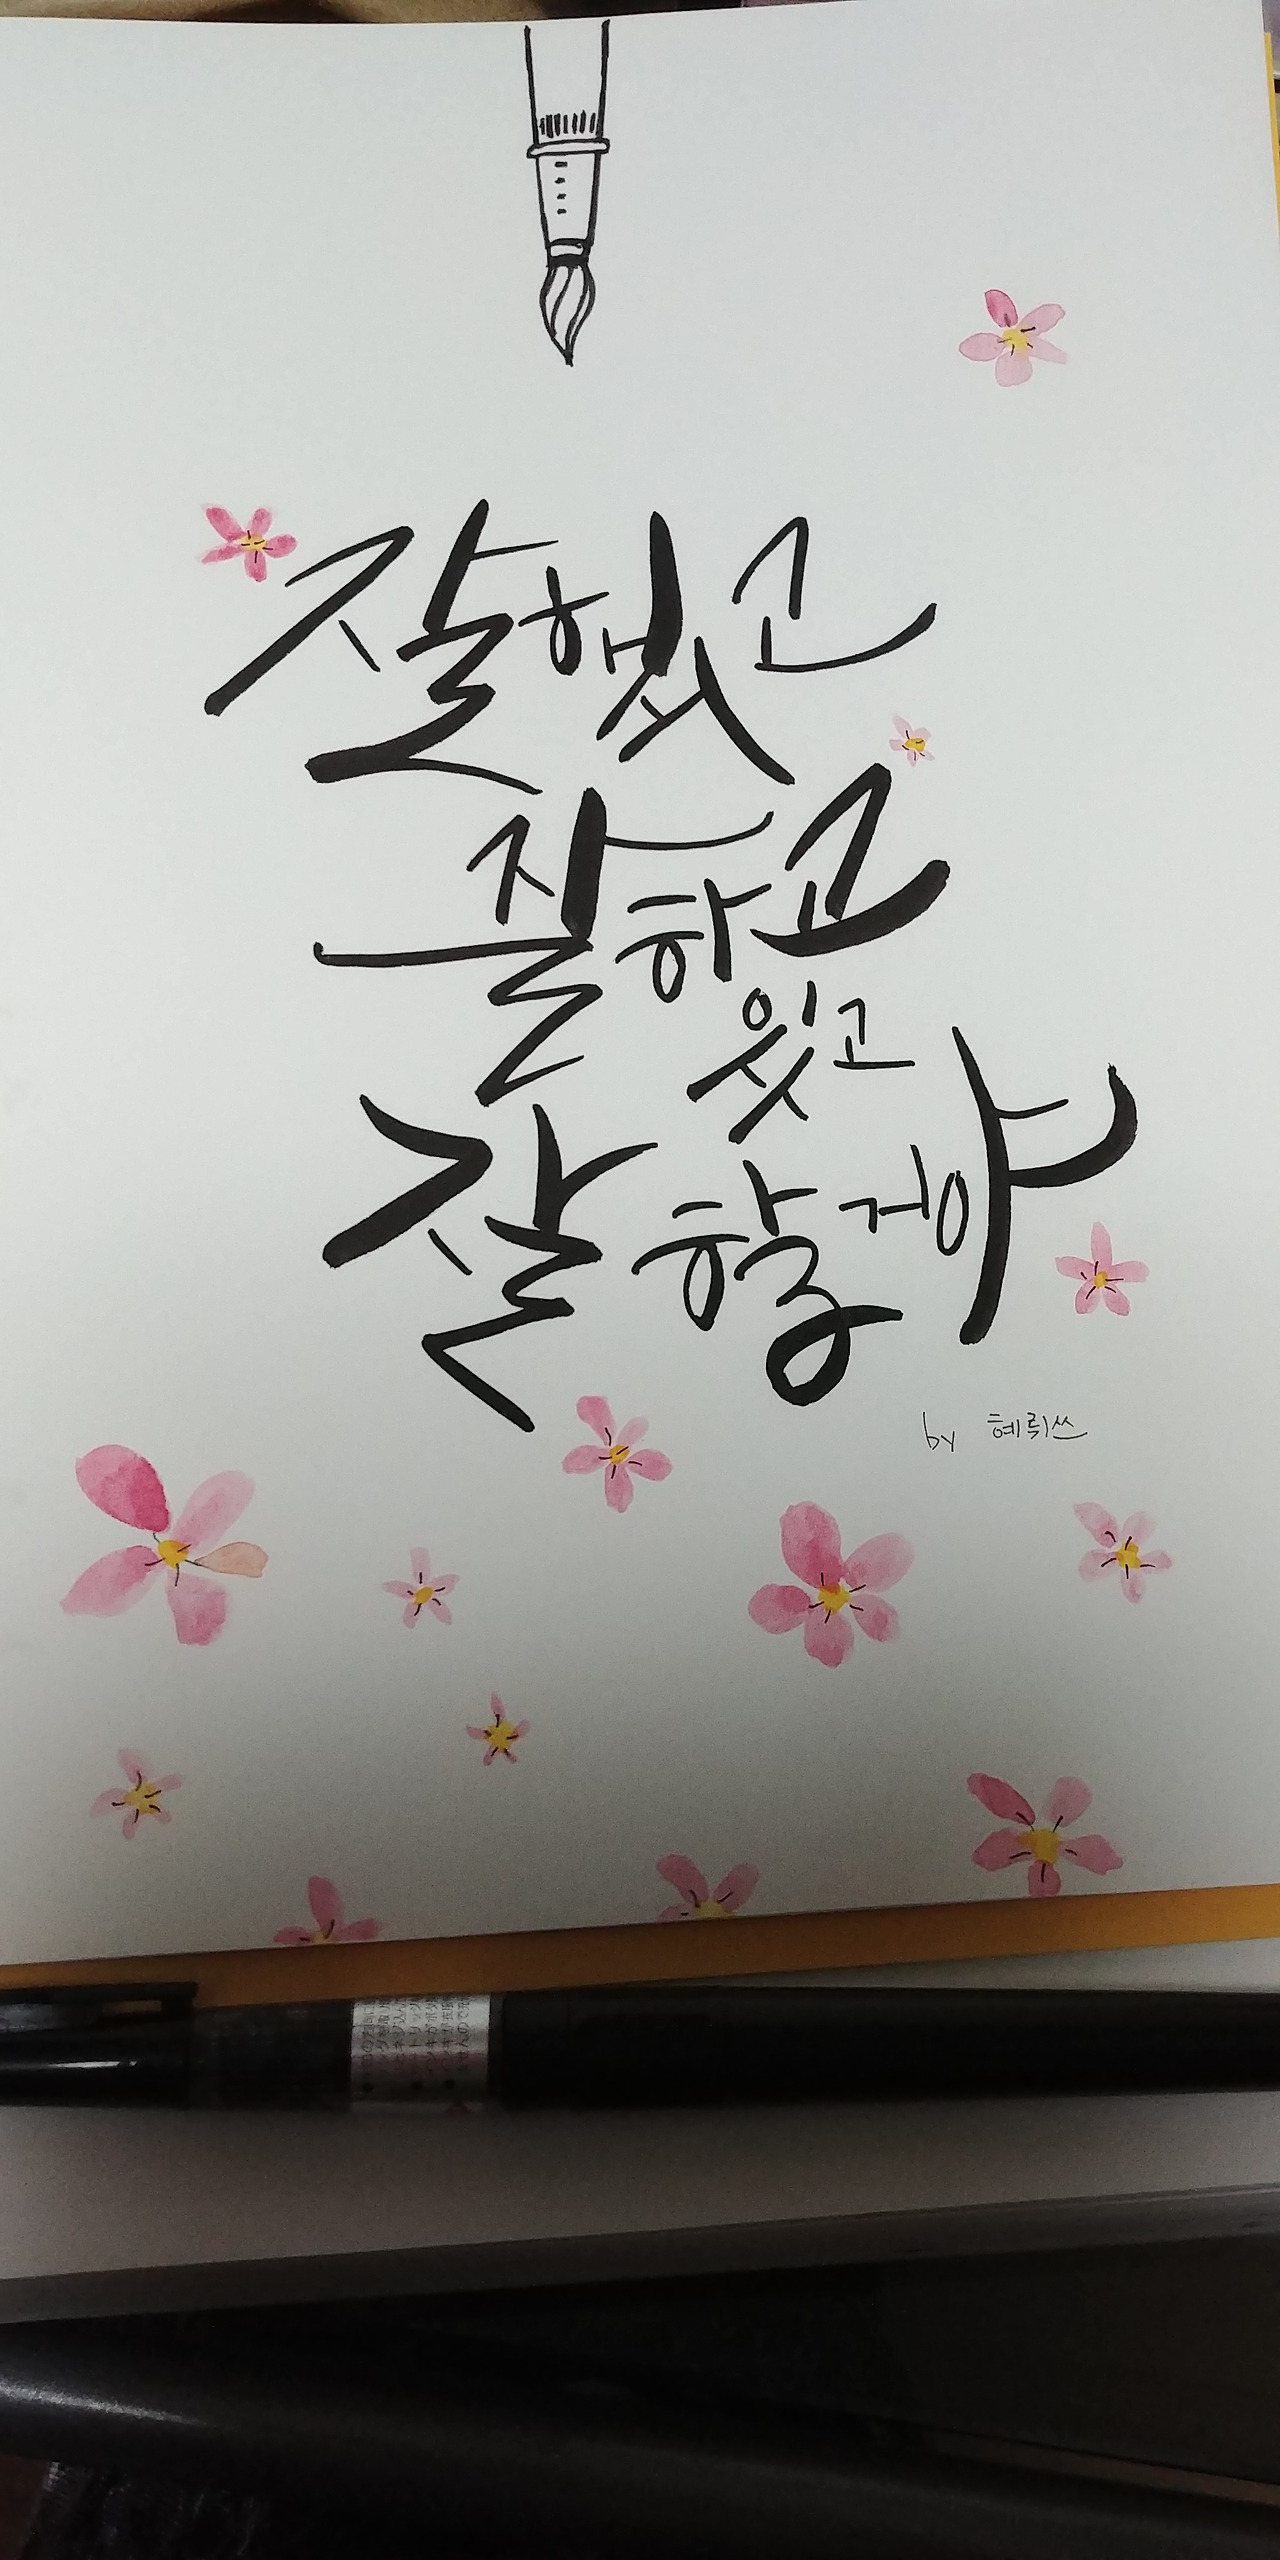 잘했고
잘하고
있고
잘할거야
by 혜뤼쓰